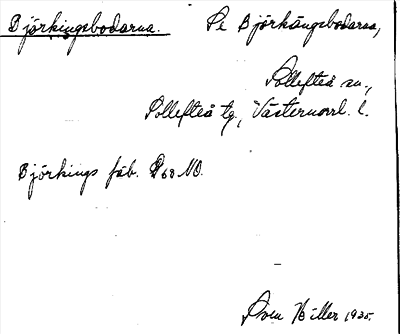 Björkingsbodarna. Se Björkängsbodarna,
Sollefteå sn.,
Sollefteå tg, Västernorrl. l.
Björkings fäb. 68 NO.
Sven Biller 1935.